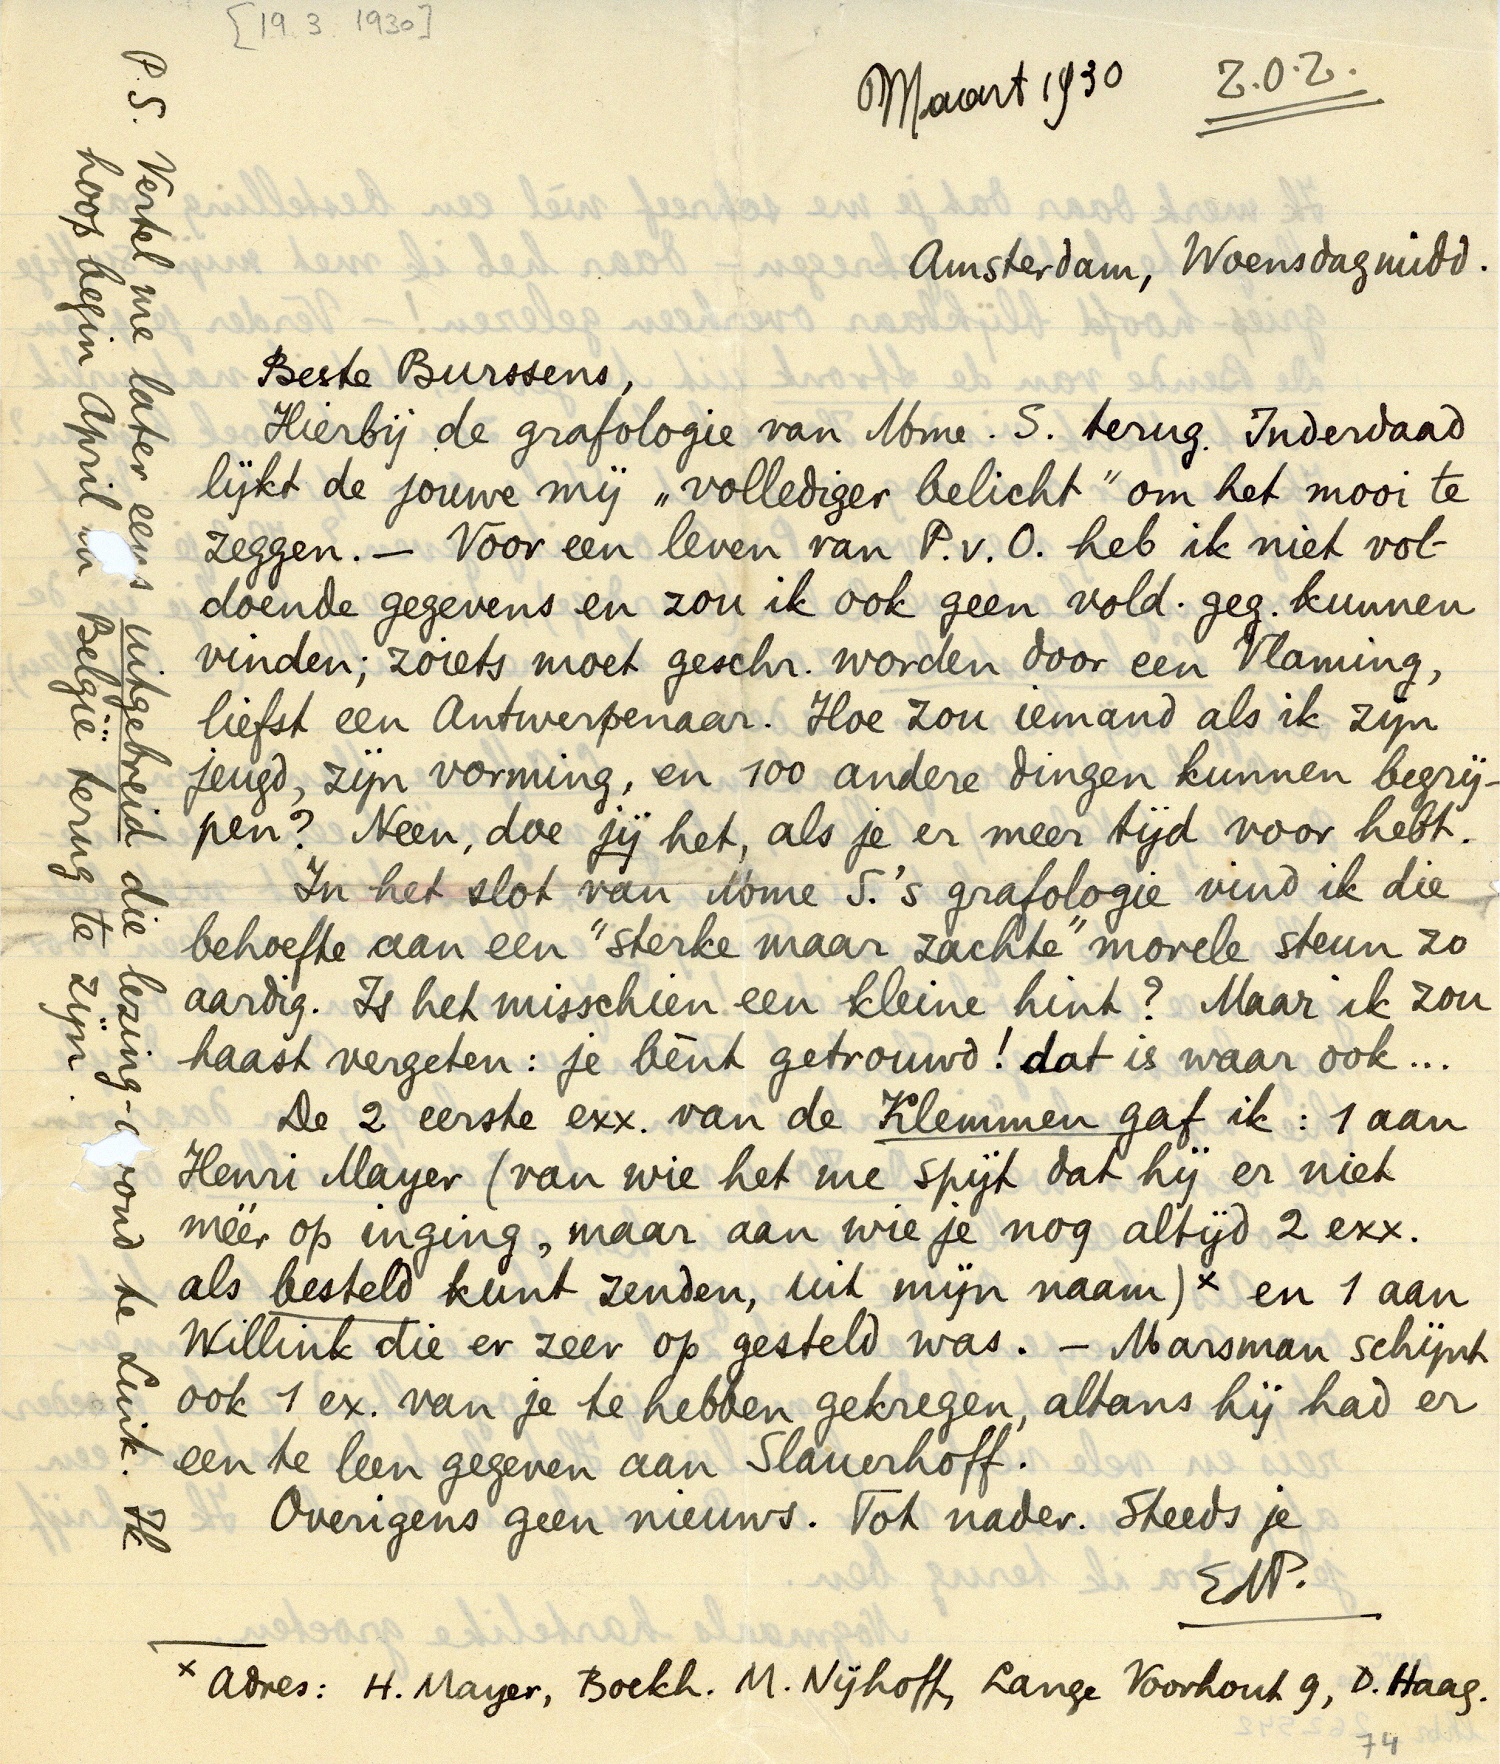 [19.3.1930]
Maart 1930
Z.O.Z.
Amsterdam, Woensdagmidd.
Beste Burssens,
Hierbij de grafologie van Mme. S. terug. Inderdaad
lijkt de jouwe mij „vollediger belicht” om het mooi te
zeggen. — Voor een leven van P.v.O. heb ik niet vol-
doende gegevens en zou ik ook geen vold. geg. kunnen
vinden; zoiets moet geschr. worden door een Vlaming,
liefst een Antwerpenaar. Hoe zou iemand als ik zijn
jeugd, zijn vorming, en 100 andere dingen kunnen begrij-
pen? Neen, doe jij het, als je er meer tijd voor hebt.
In het slot van Mme S.'s grafologie vind ik die
behoefte aan een "sterke maar zachte" morele steun zo
aardig. Is het misschien een kleine hint? Maar ik zou
haast vergeten: je bènt getrouwd! dat is waar ook...
De 2 eerste exx. van de Klemmen gaf ik: 1 aan
Henri Mayer (van wie het me spijt dat hij er niet
méér op inging, maar aan wie je nog altijd 2 exx.
als besteld kunt zenden, uit mijn naam)x en 1 aan
Willink die er zeer op gesteld was. — Marsman schijnt
ook 1 ex. van je te hebben gekregen, altans hij had er
een te leen gegeven aan Slauerhoff.
Overigens geen nieuws. Tot nader. Steeds je
EdP.
x Adres: H. Mayer, Boekh. M. Nijhoff, Lange Voorhout 9, D. Haag.
74
P.S. Vertel me later eens uitgebreid die lezing-a ond te Luik. Ik
hoop begin April in België terug te zijn.